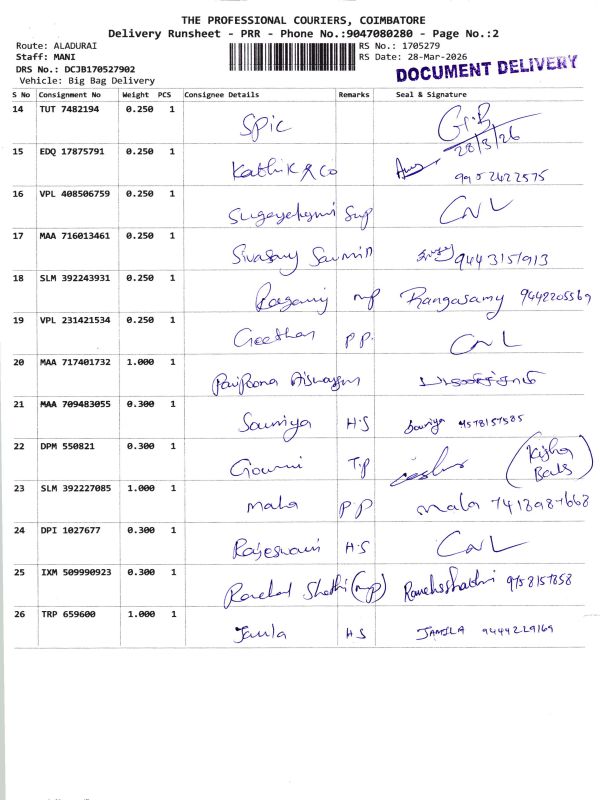 THE PROFESSIONAL COURIERS, COIMBATORE
Delivery Runsheet - PRR - Phone No.:9047080280 - Page No.:2
Route: ALADURAI
Staff: MANI
DRS No.: DCJB170527902
Vehicle: Big Bag Delivery
RS No.: 1705279
RS Date: 28-Mar-2026
DOCUMENT DELIVERY
S No Consignment No Weight PCS Consignee Details Remarks Seal & Signature
14 TUT 7482194 0.250 1 SPIC 28/3/26
15 EDQ 17875791 0.250 1 Kathik & Co
16 VPL 408506759 0.250 1 CNL
17 MAA 716013461 0.250 1
18 SLM 392243931 0.250 1 Rangasamy 9442205569
19 VPL 231421534 0.250 1 Geethan P.P. CNL
20 MAA 717401732 1.000 1
21 MAA 709483055 0.300 1 Souniya H.S Souniya 9578157585
22 DPM 550821 0.300 1 Gowri T.P
23 SLM 392227085 1.000 1 Mala P.P Mala 7418987668
24 DPI 1027677 0.300 1 Rajeswari H.S CNL
25 IXM 509990923 0.300 1 9758157858
26 TRP 659600 1.000 1 H S JAMILA 9444219169